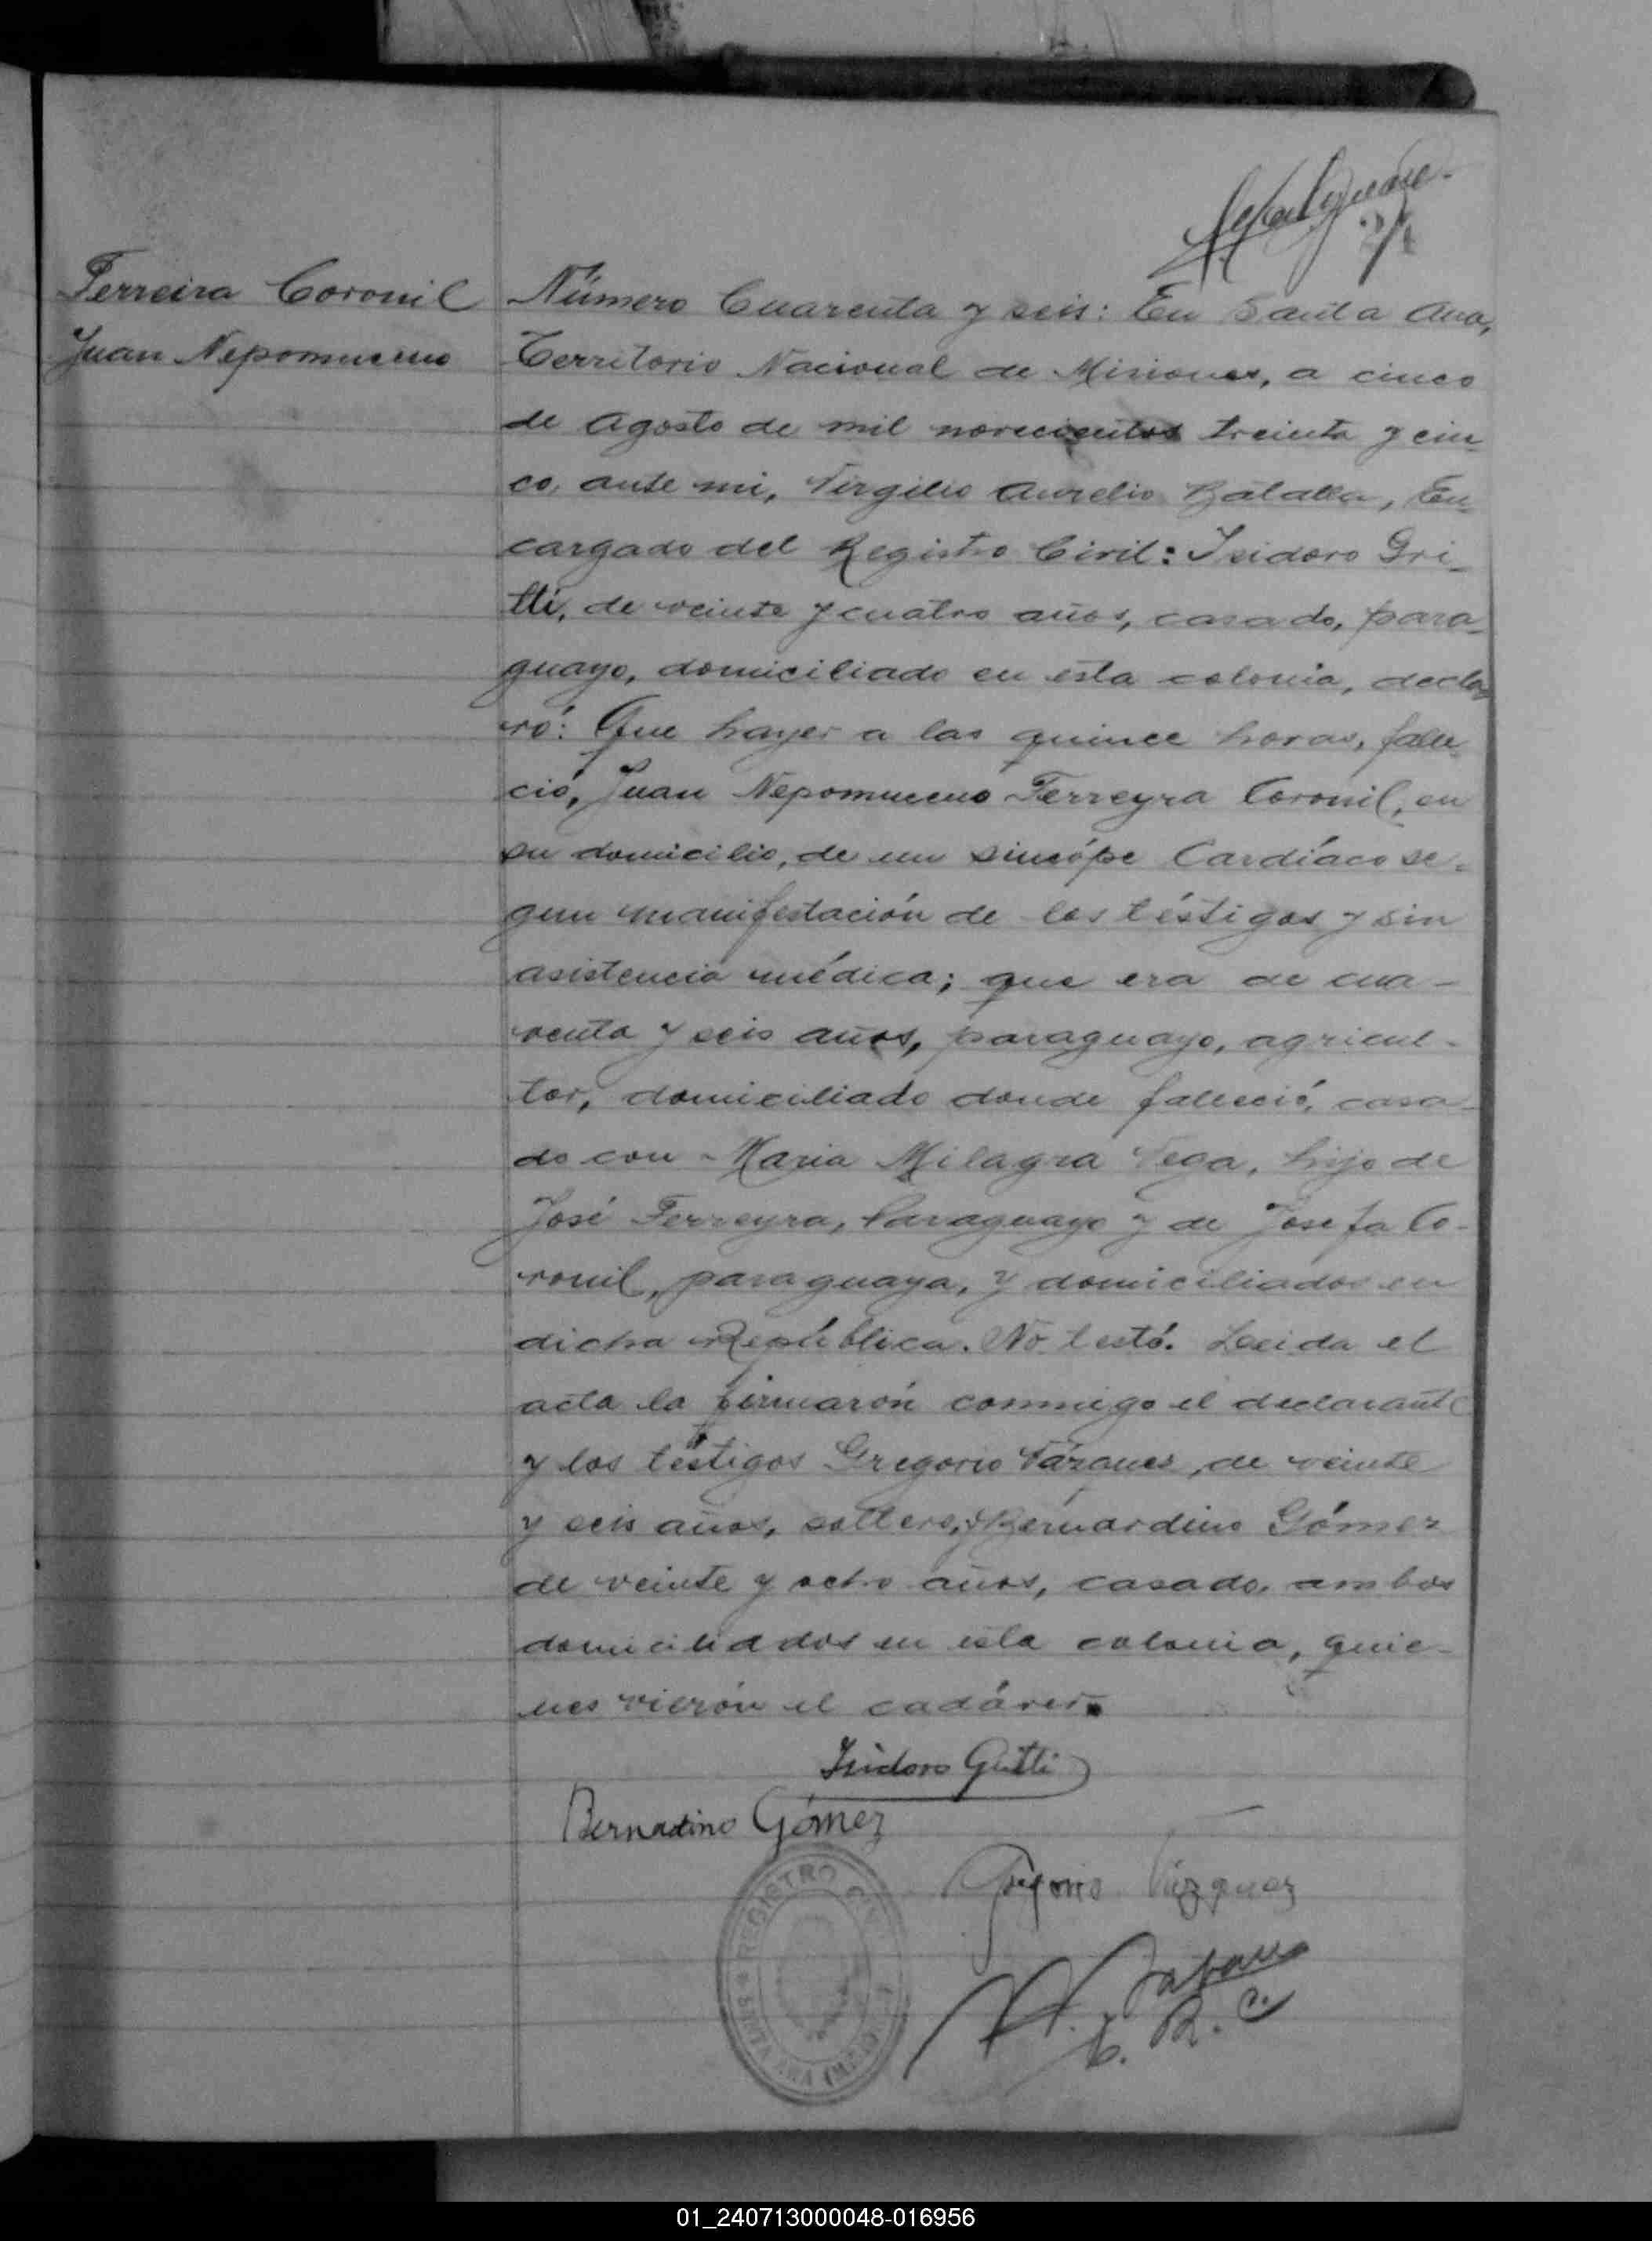 Ferreira Coronil
Juan Nepomuceno
Número Cuarenta y seis: En Santa Ana,
Territorio Nacional de Misiones, a cinco
de Agosto de mil novecientos treinta y cin-
co, ante mi, Virgilio Aurelio, En-
cargado del Registro Civil: Isidoro Gri-
tti, de veinte y cuatro años, casado, para-
guayo, domiciliado en esta colonia, decla-
ró: Que hayer a las quince horas, falle-
ció, Juan Nepomuceno Ferreyra Coronil, en
su domicilio, de un sincópe Cardíaco se-
gun manifestación de los téstigos y sin
asistencia médica; que era de cua-
renta y seis años, paraguayo, agricul-
tor, domiciliado donde falleció, casa-
do con Maria Milagra Vega, hijo de
José Ferreyra, Paraguayo y de Josefa Co-
ronil, paraguaya, y domiciliados en
dicha República. No testó. Leida el
acta la firmarón conmigo el declarante
y los téstigos Gregorio Vázques, de veinte
y seis años, soltero, y Bernardino Gómez
de veinte y ocho años, casado, ambos
domiciliados en esta colonia, quie-
nes vierón el cadáver.
Isidoro Gritti
Bernadino Gómez
Gregorio Vázquez
E. R. C.
REGISTRO CIVIL
SANTA ANA (MISIONES)
01_240713000048-016956